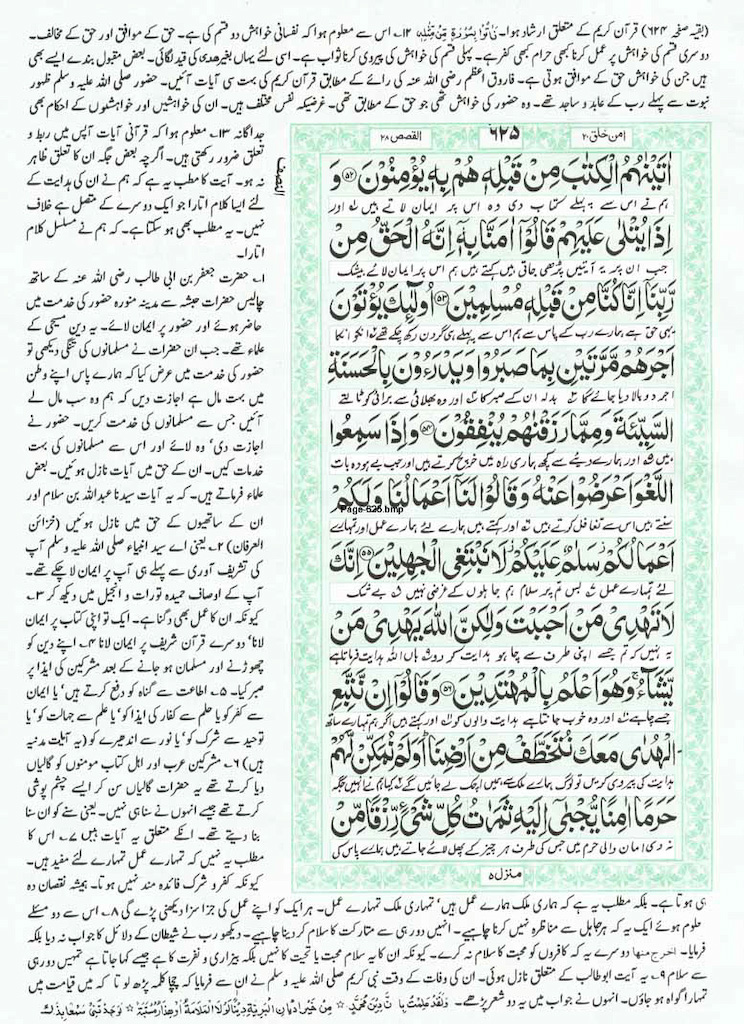 (بقیہ صفحہ ۶۲۴) قرآن کریم کے متعلق ارشاد ہوا۔ فَاْتُوْا بِسُوْرَةٍ مِّنْ مِّثْلِهٖ ۱۲۔ اس سے معلوم ہوا کہ نفسانی خواہش دو قسم کی ہے۔ حق کے موافق اور حق کے مخالف۔
دوسری قسم کی خواہش پر عمل کرنا کبھی حرام کبھی کفر ہے۔ پہلی قسم کی خواہش کی پیروی کرنا ثواب ہے۔ اسی لئے یہاں بغیر ھدی کی قید لگائی۔ بعض مقبول بندے ایسے بھی
ہیں جن کی خواہش حق کے موافق ہوتی ہے۔ فاروق اعظم رضی اللہ عنہ کی رائے کے مطابق قرآن کریم کی بہت سی آیات آئیں۔ حضور صلی اللہ علیہ وسلم ظہور
نبوت سے پہلے رب کے عابد و ساجد تھے۔ وہ حضور کی خواہش تھی جو حق کے مطابق تھی۔ غرضیکہ نفس مختلف ہیں۔ ان کی خواہشیں اور خواہشوں کے احکام بھی
جداگانہ ۱۳۔ معلوم ہوا کہ قرآنی آیات آپس میں ربط و
تعلق ضرور رکھتی ہیں۔ اگرچہ بعض جگہ ان کا تعلق ظاہر
نہ ہو۔ آیت کا مطلب یہ ہے کہ ہم نے ان کی ہدایت کے
لئے ایسا کلام اتارا جو ایک دوسرے کے متصل ہے خلاف
نہیں۔ یہ مطلب بھی ہو سکتا ہے۔ کہ ہم نے مسلسل کلام
اتارا۔
۱۔ حضرت جعفر بن ابی طالب رضی اللہ عنہ کے ساتھ
چالیس حضرات حبشہ سے مدینہ منورہ حضور کی خدمت میں
حاضر ہوئے اور حضور پر ایمان لائے۔ یہ دین مسیحی کے
علماء تھے۔ جب ان حضرات نے مسلمانوں کی تنگی دیکھی تو
حضور کی خدمت میں عرض کیا کہ ہمارے پاس اپنے وطن
میں بہت مال ہے اجازت دیں کہ ہم وہ سب مال لے
آئیں جس سے مسلمانوں کی خدمت کریں۔ حضور نے
اجازت دی' وہ لائے اور اس سے مسلمانوں کی بہت
خدمات کیں۔ ان کے حق میں آیات نازل ہوئیں۔ بعض
علماء فرماتے ہیں۔ کہ یہ آیات سیدنا عبداللہ بن سلام اور
ان کے ساتھیوں کے حق میں نازل ہوئیں (خزائن
العرفان) ۲۔ یعنی اے سید انبیاء صلی اللہ علیہ وسلم آپ
کی تشریف آوری سے پہلے ہی آپ پر ایمان لا چکے تھے۔
آپ کے اوصاف حمیدہ تورات و انجیل میں دیکھ کر ۳۔
کیونکہ ان کا عمل بھی دگنا ہے۔ ایک تو اپنی کتاب پر ایمان
لانا' دوسرے قرآن شریف پر ایمان لانا ۴۔ اپنے دین کو
چھوڑنے اور مسلمان ہو جانے کے بعد مشرکین کی ایذا پر
صبر کیا۔ ۵۔ اطاعت سے گناہ کو دفع کرتے ہیں' یا ایمان
سے کفر کو یا حلم سے کفار کی ایذا کو' یا علم سے جہالت کو' یا
توحید سے شرک کو' یا نور سے اندھیرے کو (یہ آیات مدنیہ
ہیں) ۶۔ مشرکین عرب اور اہل کتاب مومنوں کو گالیاں
دیا کرتے تھے یہ حضرات گالیاں سن کر ایسے چشم پوشی
کرتے تھے جیسے انہوں نے سنا ہی نہیں۔ یعنی سنے کو ان سنا
بنا دیتے تھے۔ انکے متعلق یہ آیات ہیں ۷۔ اس کا
مطلب یہ نہیں کہ تمہارے عمل تمہارے لئے مفید ہیں۔
کیونکہ کفر و شرک فائدہ مند نہیں ہوتا۔ ہمیشہ نقصان دہ
النصف
القصص ۲۸
۶۲۵
امن خلق ۲۰
اٰتَيْنٰهُمُ الْكِتٰبَ مِنْ قَبْلِهٖ هُمْ بِهٖ يُؤْمِنُوْنَ ﴿۵۲﴾ وَ
ہم نے اس سے پہلے کتاب دی وہ اس پر ایمان لاتے ہیں اور
اِذَا يُتْلٰى عَلَيْهِمْ قَالُوْۤا اٰمَنَّا بِهٖۤ اِنَّهُ الْحَقُّ مِنْ
جب ان پر یہ آیتیں پڑھی جاتی ہیں کہتے ہیں ہم اس پر ایمان لائے بیشک
رَّبِّنَاۤ اِنَّا كُنَّا مِنْ قَبْلِهٖ مُسْلِمِيْنَ ﴿۵۳﴾ اُولٰٓئِكَ يُؤْتَوْنَ
یہی حق ہے ہمارے رب کے پاس سے ہم اس سے پہلے ہی گردن رکھ چکے تھے انکو انکا
اَجْرَهُمْ مَّرَّتَيْنِ بِمَا صَبَرُوْا وَيَدْرَءُوْنَ بِالْحَسَنَةِ
اجر دوبالا دیا جائے گا بدلہ ان کے صبر کا اور وہ بھلائی سے برائی کو ٹالتے
السَّيِّئَةَ وَمِمَّا رَزَقْنٰهُمْ يُنْفِقُوْنَ ﴿۵۴﴾ وَاِذَا سَمِعُوا
ہیں اور ہمارے دیئے سے کچھ ہماری راہ میں خرچ کرتے ہیں اور جب بے ہودہ بات
اللَّغْوَ اَعْرَضُوْا عَنْهُ وَقَالُوْا لَنَاۤ اَعْمَالُنَا وَلَكُمْ
Page-625.bmp
سنتے ہیں اس سے تغافل کرتے ہیں اور کہتے ہیں ہمارے لئے ہمارے عمل اور تمہارے
اَعْمَالُكُمْ سَلٰمٌ عَلَيْكُمْ لَا نَبْتَغِى الْجٰهِلِيْنَ ﴿۵۵﴾ اِنَّكَ
لئے تمہارے عمل بس تم پر سلام ہم جاہلوں کے غرضی نہیں بے شک
لَا تَهْدِيْ مَنْ اَحْبَبْتَ وَلٰكِنَّ اللّٰهَ يَهْدِيْ مَنْ
یہ نہیں کہ تم جسے اپنی طرف سے چاہو ہدایت کر دو ہاں اللہ ہدایت فرماتا ہے
يَّشَآءُ وَهُوَ اَعْلَمُ بِالْمُهْتَدِيْنَ ﴿۵۶﴾ وَقَالُوْۤا اِنْ نَّتَّبِعِ
جسے چاہے اور وہ خوب جانتا ہے ہدایت والوں کو اور کہتے ہیں اگر ہم تمہارے ساتھ
الْهُدٰى مَعَكَ نُتَخَطَّفْ مِنْ اَرْضِنَا اَوَلَمْ نُمَكِّنْ لَّهُمْ
ہدایت کی پیروی کریں تو لوگ ہمارے ملک سے ہمیں اچک لے جائیں گے کیا ہم نے انہیں جگہ
حَرَمًا اٰمِنًا يُّجْبٰۤى اِلَيْهِ ثَمَرٰتُ كُلِّ شَىْءٍ رِّزْقًا مِّنْ
نہ دی امان والی حرم میں جس کی طرف ہر چیز کے پھل لائے جاتے ہیں ہمارے پاس کی
منزل ۵
ہی ہوتا ہے۔ بلکہ مطلب یہ ہے کہ ہماری ملک ہمارے عمل ہیں' تمہاری ملک تمہارے عمل۔ ہر ایک کو اپنے عمل کی جزا سزا دیکھنی پڑے گی ۸۔ اس سے دو مسئلے
معلوم ہوئے ایک یہ کہ ہر جاہل سے مناظرہ نہیں کرنا چاہیے۔ انہیں دور ہی سے متارکت کا سلام کر دینا چاہیے۔ دیکھو رب نے شیطان کے دلائل کا جواب نہ دیا بلکہ
فرمایا۔ اخرج منها دوسرے یہ کہ کافروں کو محبت کا سلام نہ کرے۔ کیونکہ ان کا یہ سلام محبت یا تحیت کا نہیں بلکہ بیزاری و نفرت کا ہے جیسے کہا جاتا ہے تمہیں دور ہی
سے سلام ۹۔ یہ آیت ابوطالب کے متعلق نازل ہوئی۔ ان کی وفات کے وقت نبی کریم صلی اللہ علیہ وسلم نے ان سے فرمایا کہ چچا کلمہ پڑھ لو تا کہ میں قیامت میں
تمہارا گواہ ہو جاؤں۔ انہوں نے جواب میں یہ دو شعر پڑھے۔ وَلَقَدْ عَلِمْتُ بِاَنَّ دِيْنَ مُحَمَّدٍ ☆ مِنْ خَيْرِ اَدْيَانِ الْبَرِيَّةِ دِيْنًا لَوْلَا الْمَلَامَةُ اَوْ حِذَارُ مَسَبَّةٍ ☆ لَوَجَدْتَّنِيْ سَمْحًا بِذَاكَ